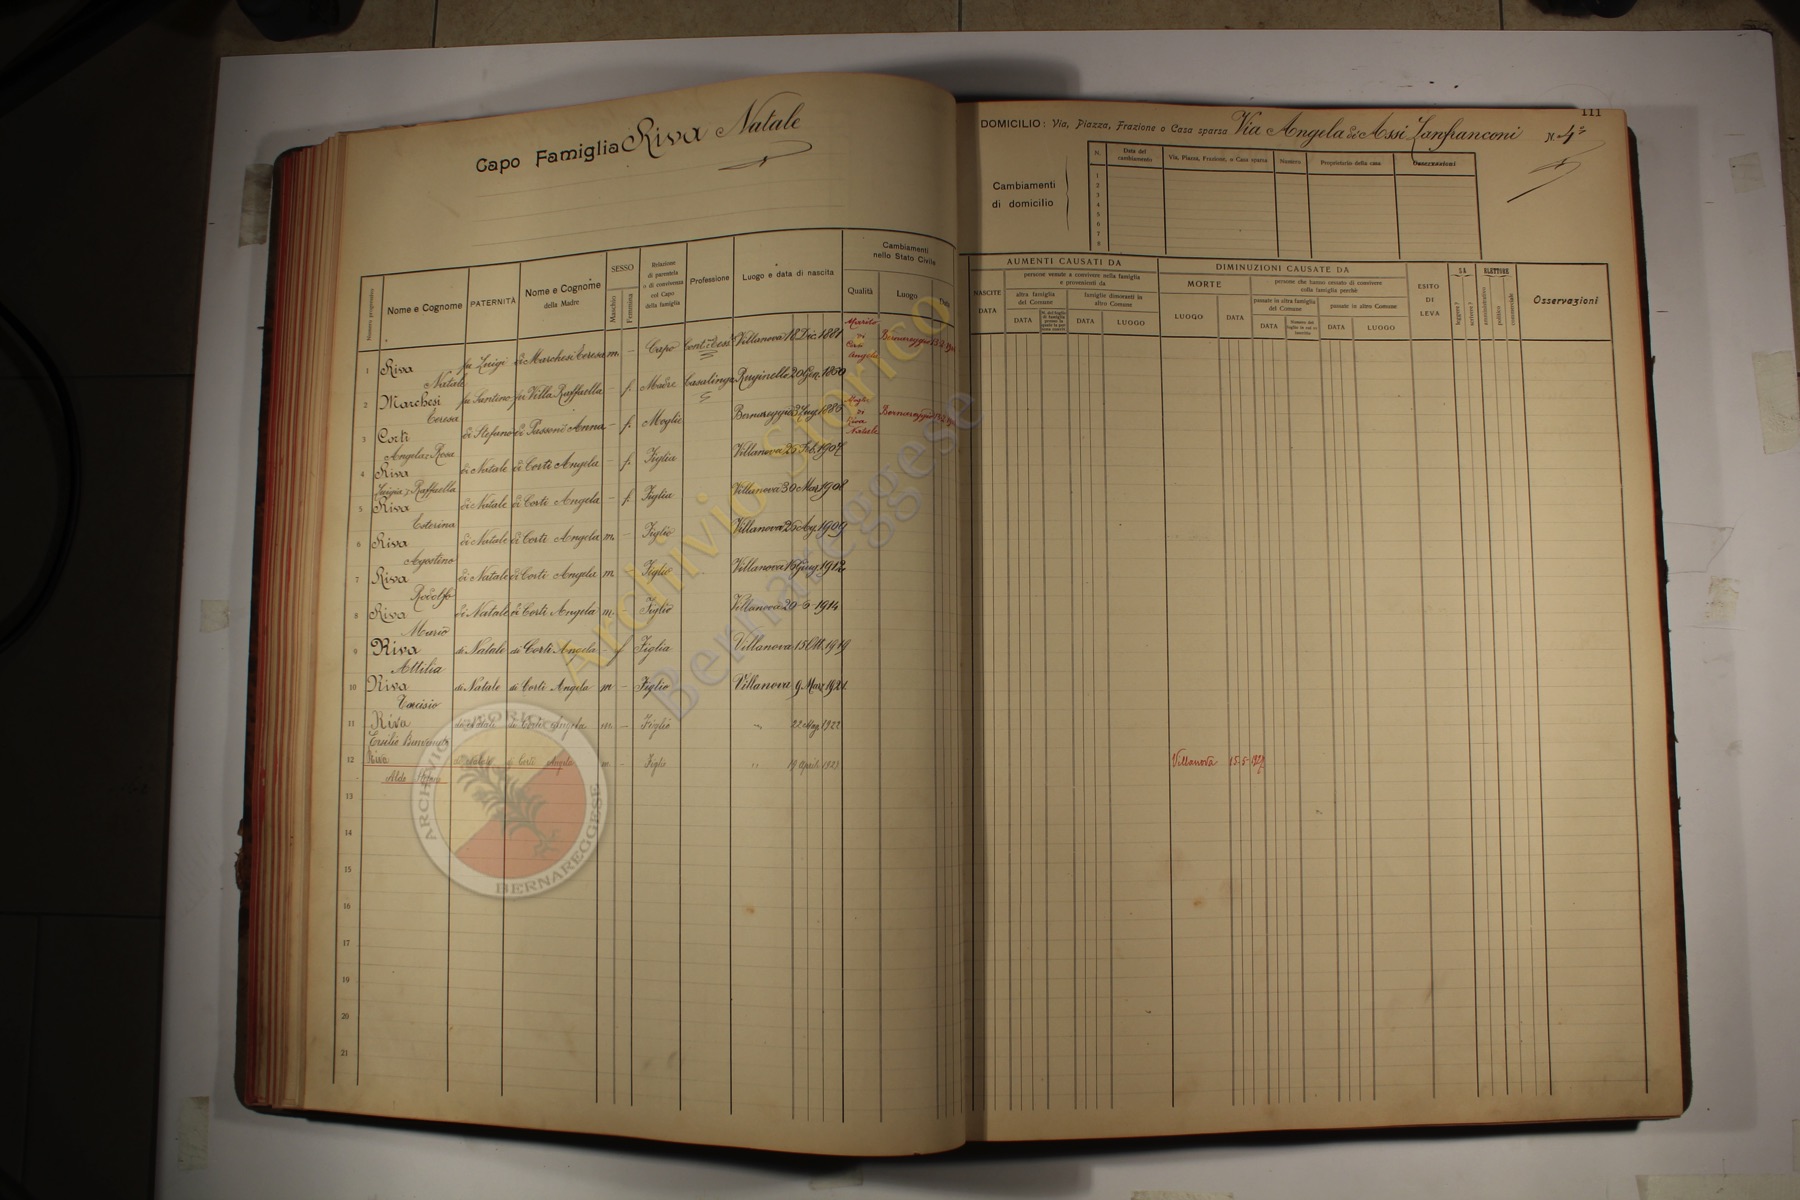 Capo Famiglia Riva Natale
111
DOMICILIO: Via, Piazza, Frazione o Casa sparsa Via Angela di Assi Lanfranconi N. 4
Cambiamenti
di domicilio
N. Data del cambiamento Via, Piazza, Frazione, o Casa sparsa Numero Proprietario della casa Osservazioni
1
2
3
4
5
6
7
8
Numero progressivo Nome e Cognome PATERNITÀ Nome e Cognome della Madre SESSO Maschio Femmina Relazione di parentela o di convivenza col Capo della famiglia Professione Luogo e data di nascita Cambiamenti nello Stato Civile Qualità Luogo Data
NASCITE DATA AUMENTI CAUSATI DA persone venute a convivere nella famiglia e provenienti da altra famiglia del Comune DATA famiglie dimoranti in altro Comune DATA LUOGO
DIMINUZIONI CAUSATE DA MORTE LUOGO DATA persone che han cessato di convivere colla famiglia perchè passate in altra famiglia del Comune DATA passate in altro Comune DATA LUOGO
ESITO DI LEVA SA leggere? scrivere? ELETTORE amministrativo politico commerciale Osservazioni
1 Riva Natale fu Luigi di Marchesi Teresa m. - Capo Villanova 18 Dic. 1881 Marito di Corti Angela Bernareggio
2 Marchesi Teresa fu Santino fu Villa Raffaella - f. Madre Casalinga Ruginello 20 Gen. 1860
3 Corti Angela Rosa di Stefano di Passoni Anna - f. Moglie Bernareggio 3 Lug. 1886 Moglie di Riva Natale Bernareggio
4 Riva Luigia Raffaella di Natale di Corti Angela - f. Figlia Villanova 25 Feb. 1907
5 Riva Esterina di Natale di Corti Angela - f. Figlia Villanova 30 Mar. 1908
6 Riva Agostino di Natale di Corti Angela m. Figlio Villanova 26 Ag. 1909
7 Riva Rodolfo di Natale di Corti Angela m. Figlio Villanova 16 Giug. 1912
8 Riva Mario di Natale di Corti Angela m. Figlio Villanova 20-6-1914
9 Riva Attilia di Natale di Corti Angela - f Figlia Villanova 15 Ott. 1919
10 Riva Tarcisio di Natale di Corti Angela m - Figlio Villanova 9 Marz. 1921
11 Riva Ersilio di Natale di Corti Angela m. - Figlio " 22 Mag. 1922
12 Riva Aldo di Natale di Corti Angela m. - Figlio " 19 Aprile 1923 Villanova 15-5-1927
13
14
15
16
17
18
19
20
21
Archivio Storico
Bernareggese
ARCHIVIO STORICO
BERNAREGGESE